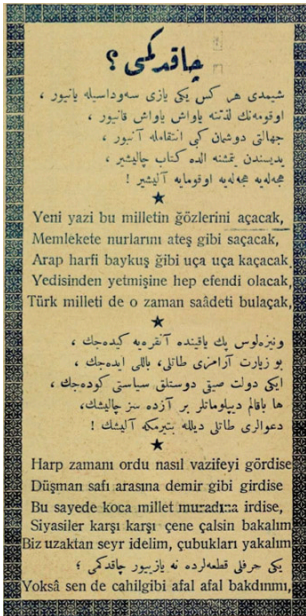 چاقدكمی ؟
شیمدی هر كس یكی یازی سه‌وداسیله یانیور ،
اوقومه‌نك لذتنه یاواش یاواش قانیور ،
جهالتی دوشمان كبی انتقامله آنیور ،
یدیسندن یتمشنه الده كتاب چالیشیر ،
هجه‌لیه هجه‌لیه اوقومایه آلیشیر !
Yeni yazi bu milletin ğözlerini açacak,
Memlekete nurlarını ateş gibi saçacak,
Arap harfi baykuş ğibi uça uça kaçacak,
Yedisinden yetmişine hep efendi olacak,
Türk milleti de o zaman saâdeti bulaçak,
ونیزه‌لوس پك یاقینده آنقره‌یه كیده‌جك ،
بو زیارت آرامزی طاتلی، باللی ایده‌جك ،
ایكی دولت صیقی دوستلق سیاستی كوده‌جك ،
ها باقالم دیپلوماتلر بر آزده سز چالیشك،
دعوالری طاتلی دیلله بتیرمكه آلیشك !
Harp zamanı ordu nasıl vazifeyi gördise
Düşman safı arasına demir gibi girdise
Bu sayede koca millet muradına irdise,
Siyasiler karşı karşı çene çalsin bakalım
Biz uzaktan seyr idelim, çubukları yakalım
یكی حرفلی قطعه‌لرده نه یازییور چاقدكمی ؟
Yoksâ sen de cahilgibi afal afal bakdınmı,